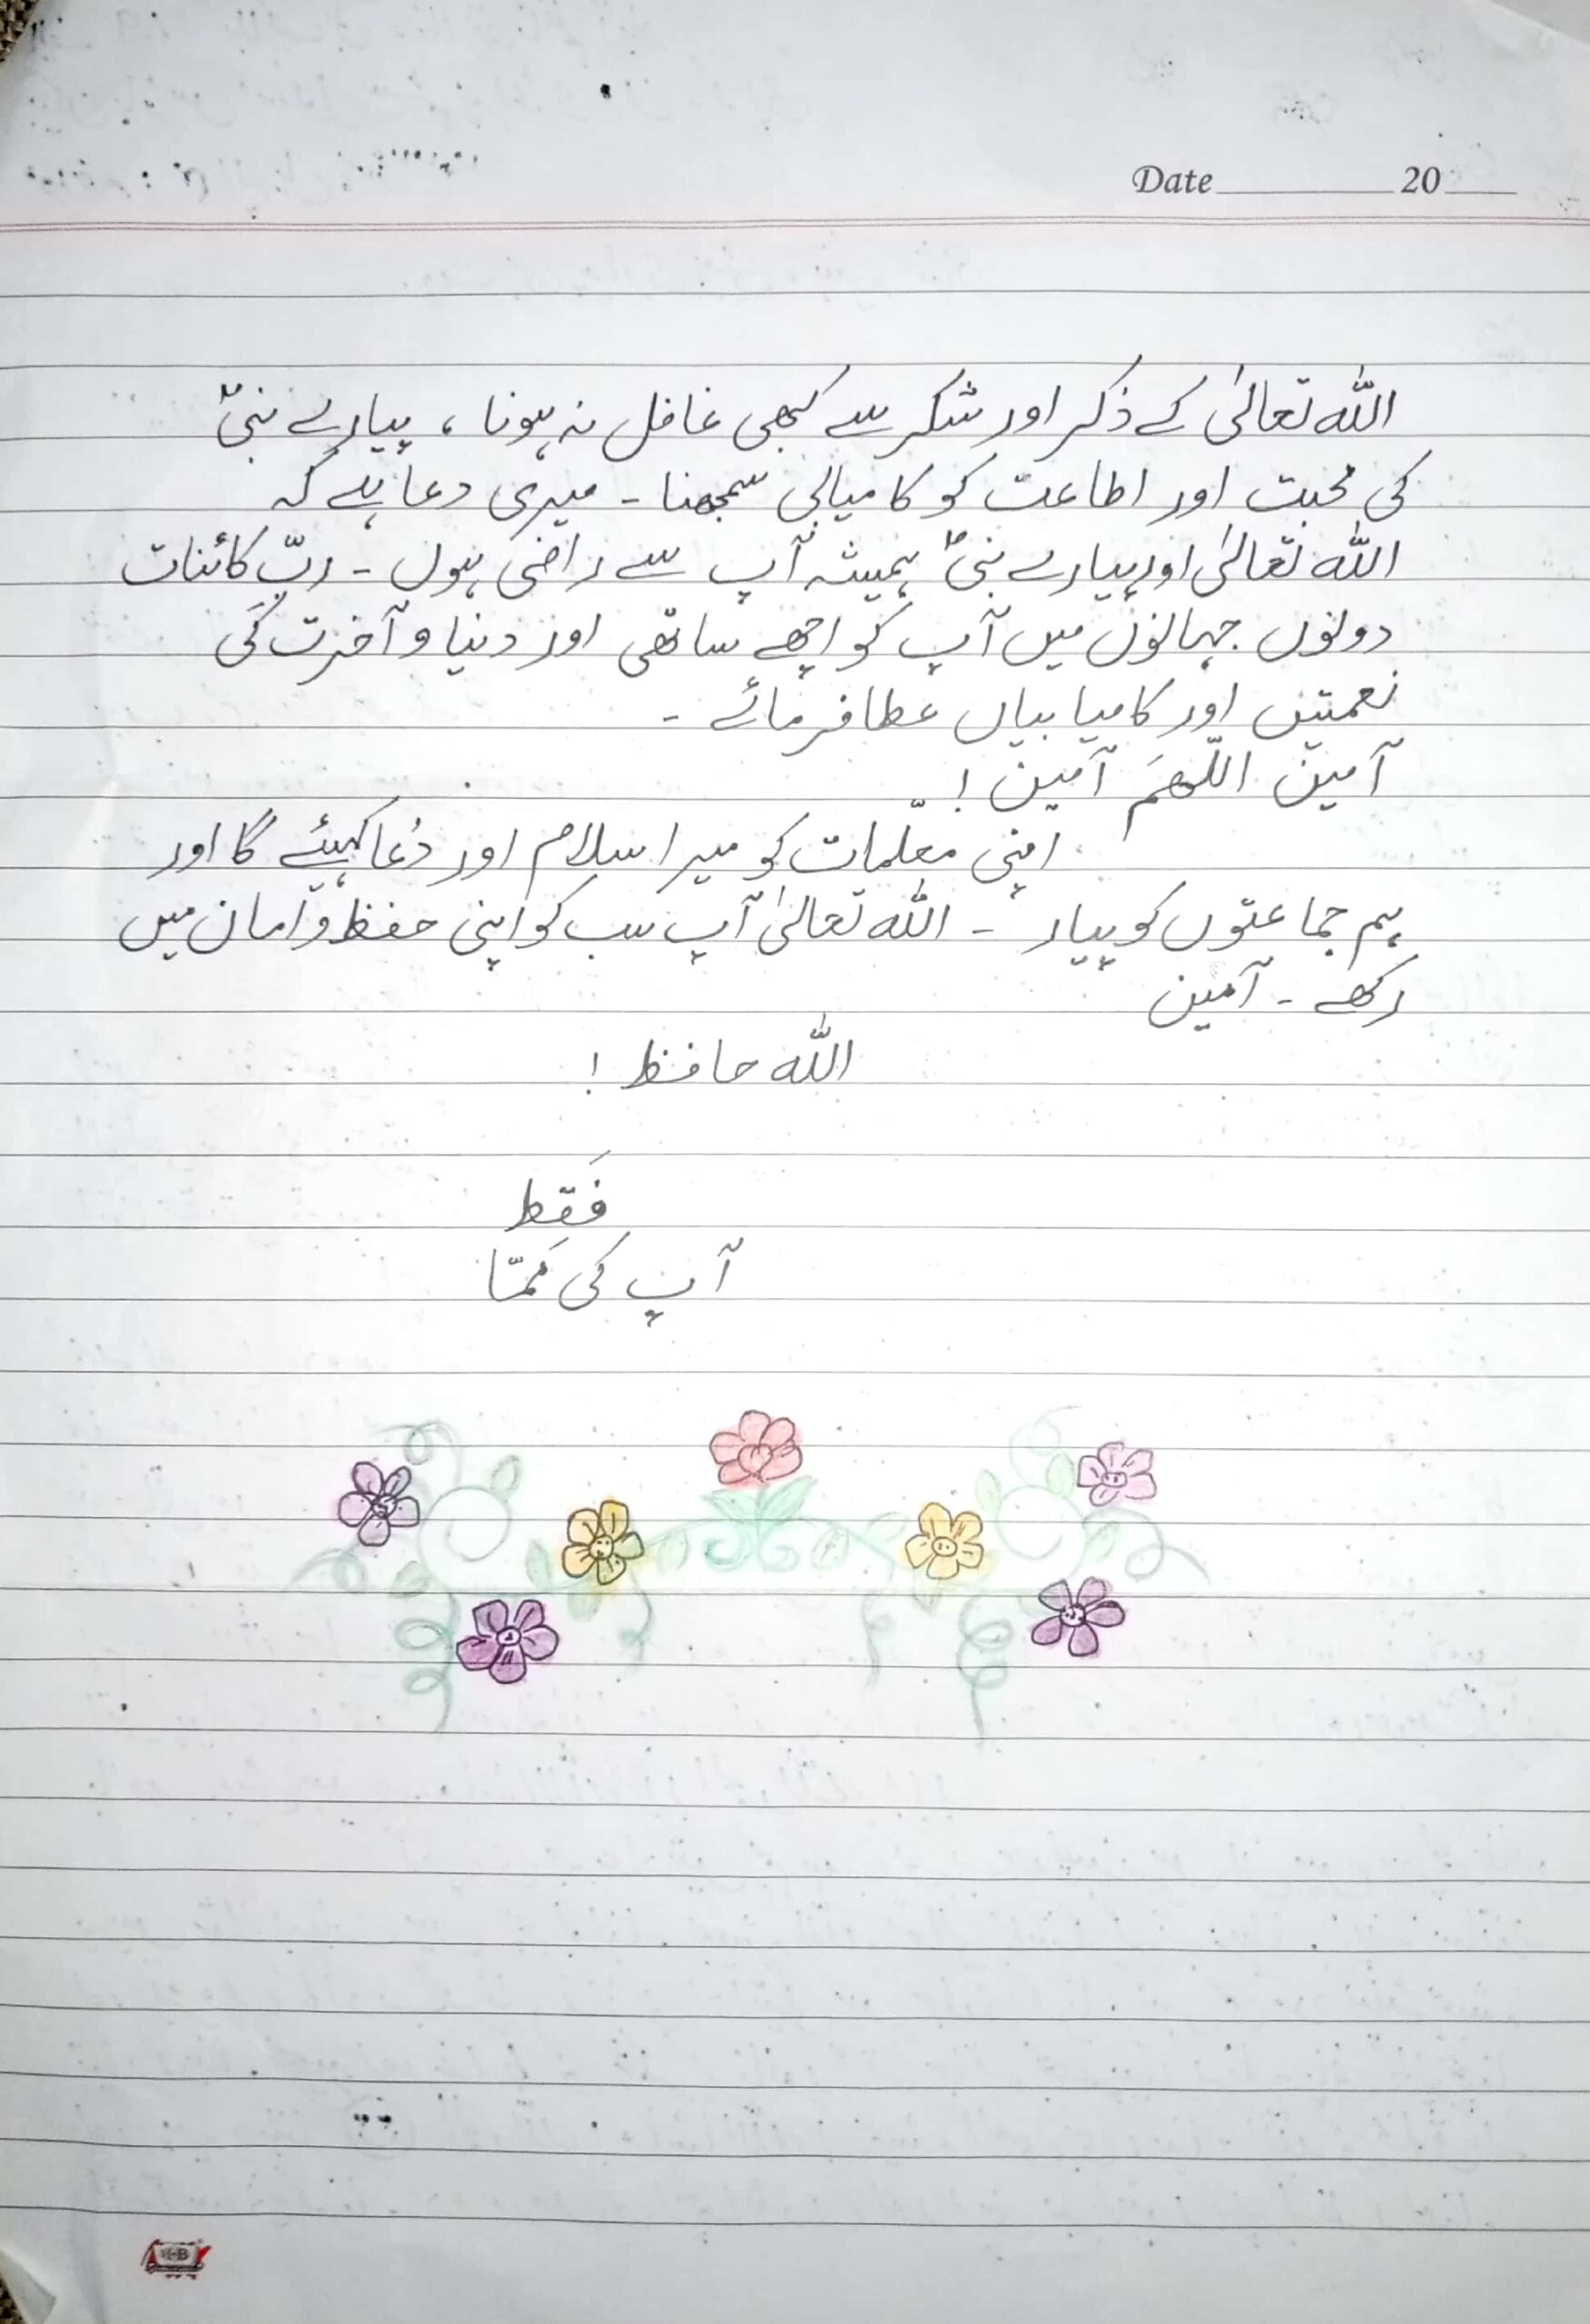 Date 20
اللہ تعالیٰ کے ذکر اور شکر سے کبھی غافل نہ ہونا ، پیارے نبیؐ
کی محبت اور اطاعت کو کامیابی سمجھنا ۔ میری دعا ہے کہ
اللہ تعالیٰ اور پیارے نبیؐ ہمیشہ آپ سے راضی ہوں ۔ ربّ کائنات
دونوں جہانوں میں آپ کو اچھے ساتھی اور دنیا و آخرت کی
نعمتیں اور کامیابیاں عطا فرمائے ۔
آمین اللّھمَ آمین !
اپنی معلّمات کو میرا سلام اور دُعا کہیئے گا اور
ہم جماعتوں کو پیار ۔ اللہ تعالیٰ آپ سب کو اپنی حفظ و امان میں
رکھے ۔ آمین
اللہ حافظ !
فَقَط
آپ کی مَمّتا